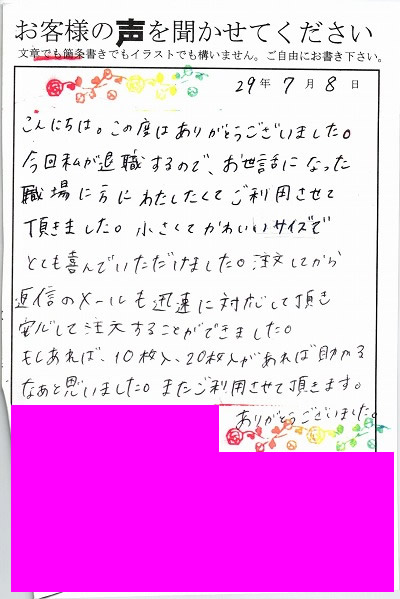 お客様の声を聞かせてください
文章でも箇条書きでもイラストでも構いません。ご自由にお書き下さい。
29年 7月 8日
こんにちは。この度はありがとうございました。
今回私が退職するので、お世話になった
職場に方にわたしたくてご利用させて
頂きました。小さくてかわいいサイズで
とても喜んでいただけました。注文してから
返信のメールも迅速に対応して頂き
安心して注文することができました。
もしあれば、10枚入、20枚入があれば助かる
なあと思いました。またご利用させて頂きます。
ありがとうございました。